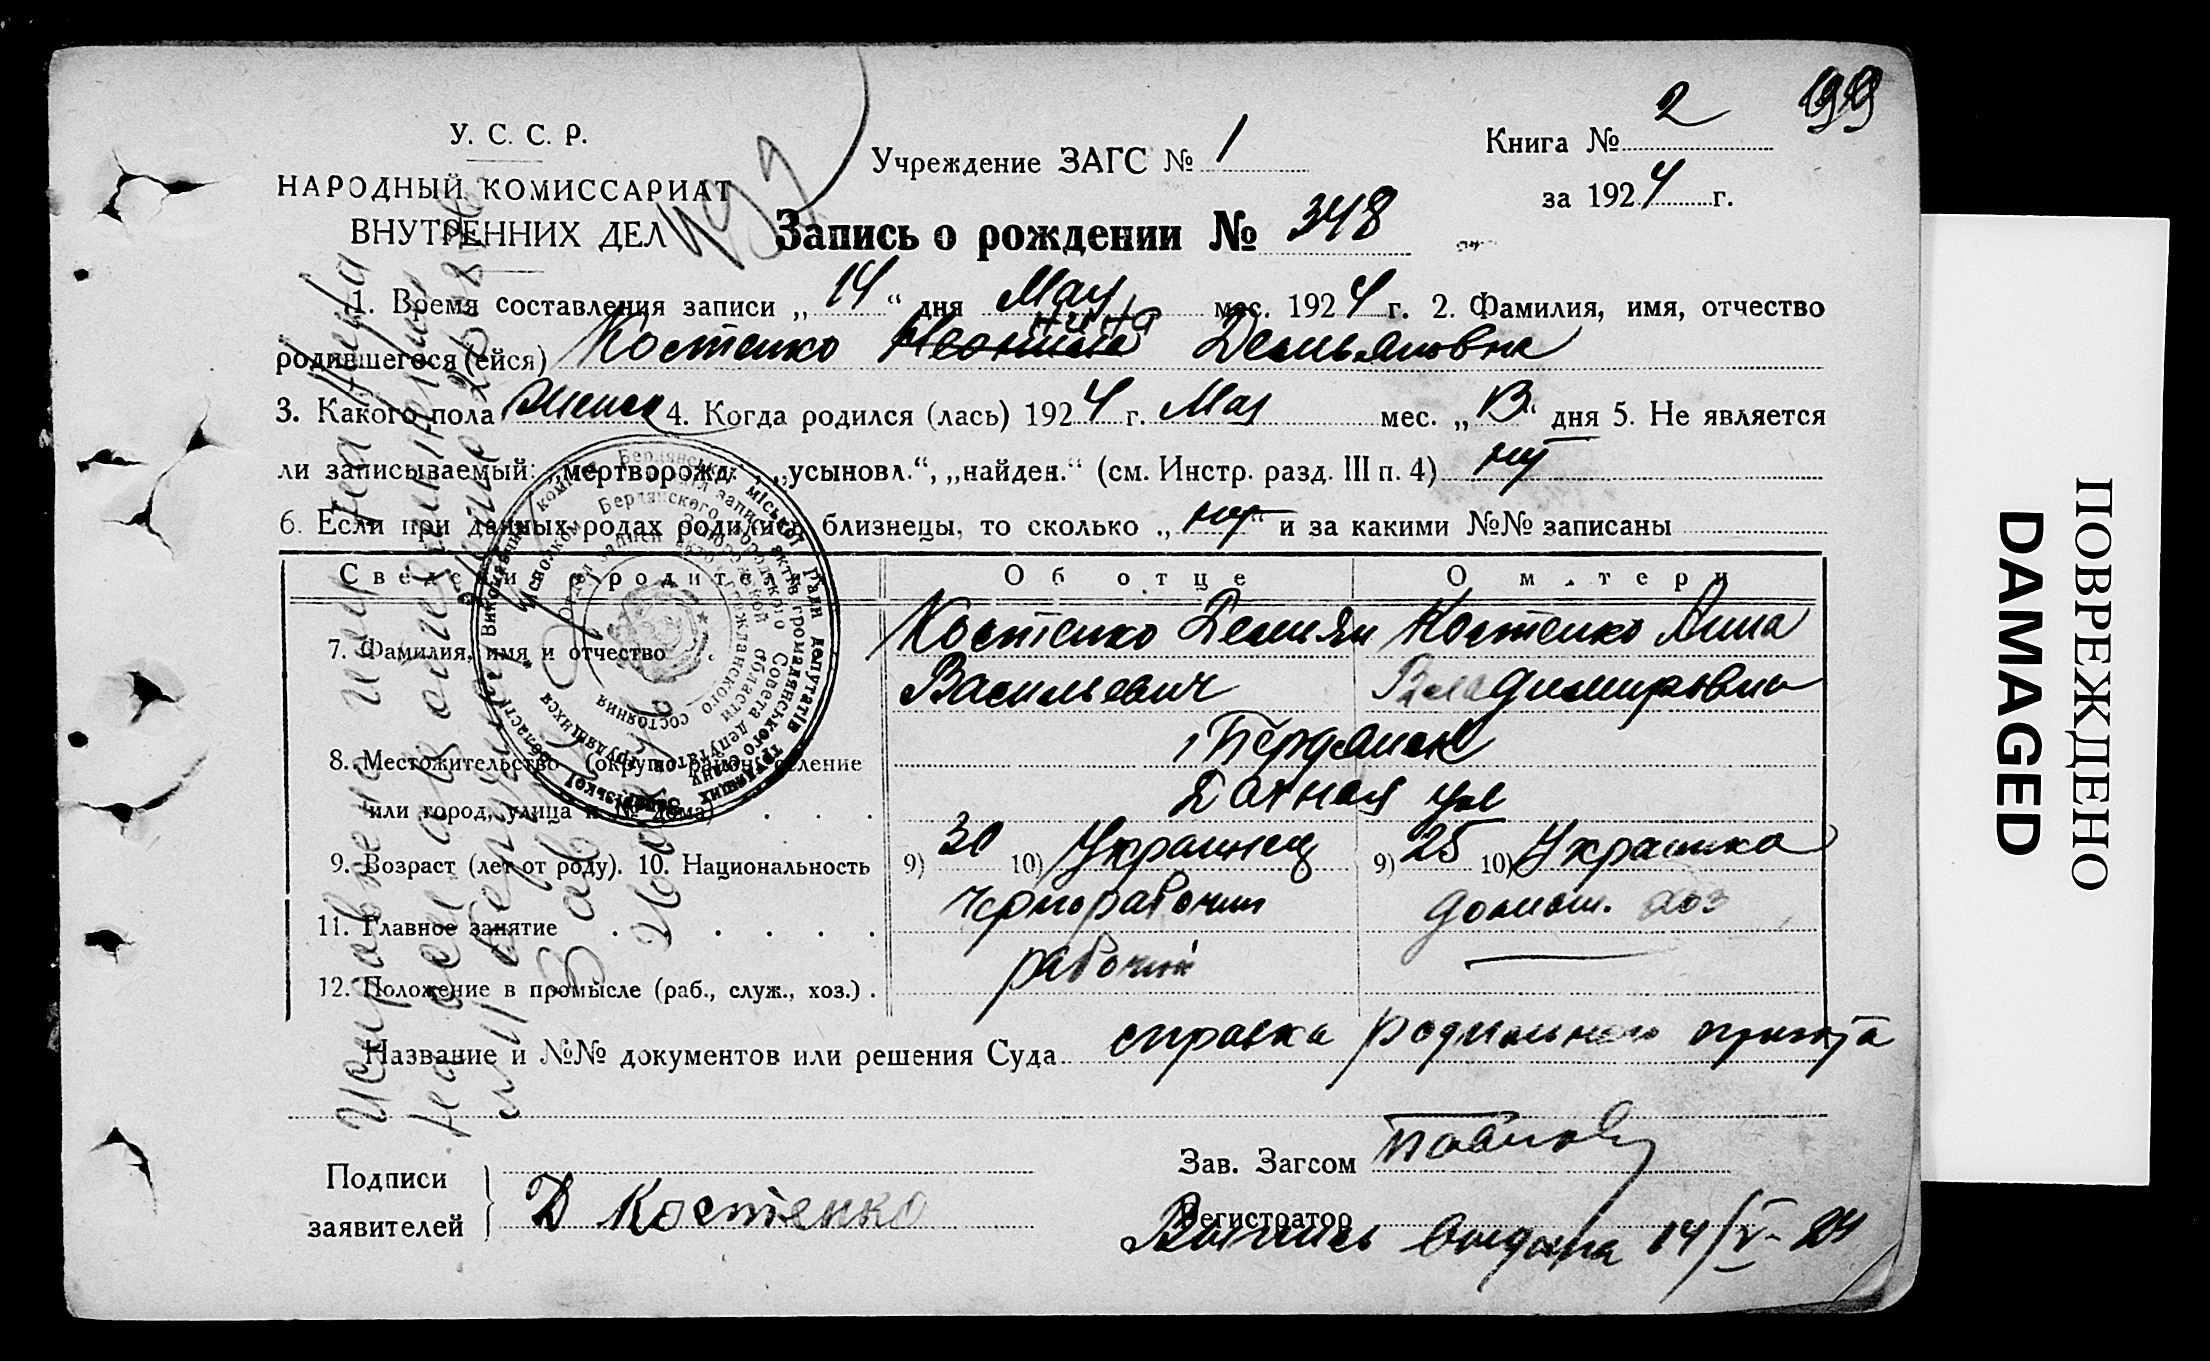 199
У. С. С. Р.
НАРОДНЫЙ КОМИССАРИАТ
ВНУТРЕННИХ ДЕЛ
Учреждение ЗАГС № 1
Книга № 2
за 1924 г.
Запись о рождении № 348
1. Время составления записи „ 14 “ дня Мая мес. 1924 г. 2. Фамилия, имя, отчество
родившегося (ейся) Костенко Демьяновна
3. Какого пола женск 4. Когда родился (лась) 1924 г. Мая мес. „ 13 “ дня 5. Не является
ли записываемый: „мертворожд.“, „усыновл.“, „найден.“ (см. Инстр. разд. III п. 4) нет
6. Если при данных родах родились близнецы, то сколько „ нет “ и за какими №№ записаны
Сведения о родителях Об отце О матери
7. Фамилия, имя и отчество Костенко Демьян Костенко Анна
Васильевич Владимировна
8. Местожительство (округ, район, селение г Бердянск
или город, улица и № дома) Дачная ул
9. Возраст (лет от роду). 10. Национальность 9) 30 10) Украинец 9) 25 10) Украинка
11. Главное занятие чернорабочий домаш. хоз
12. Положение в промысле (раб., служ., хоз.) рабочий
Название и №№ документов или решения Суда справка родильного приюта
Подписи
заявителей
Д Костенко
Зав. Загсом
Регистратор
Выпись выдана 14/V-24
ПОВРЕЖДЕНО
DAMAGED